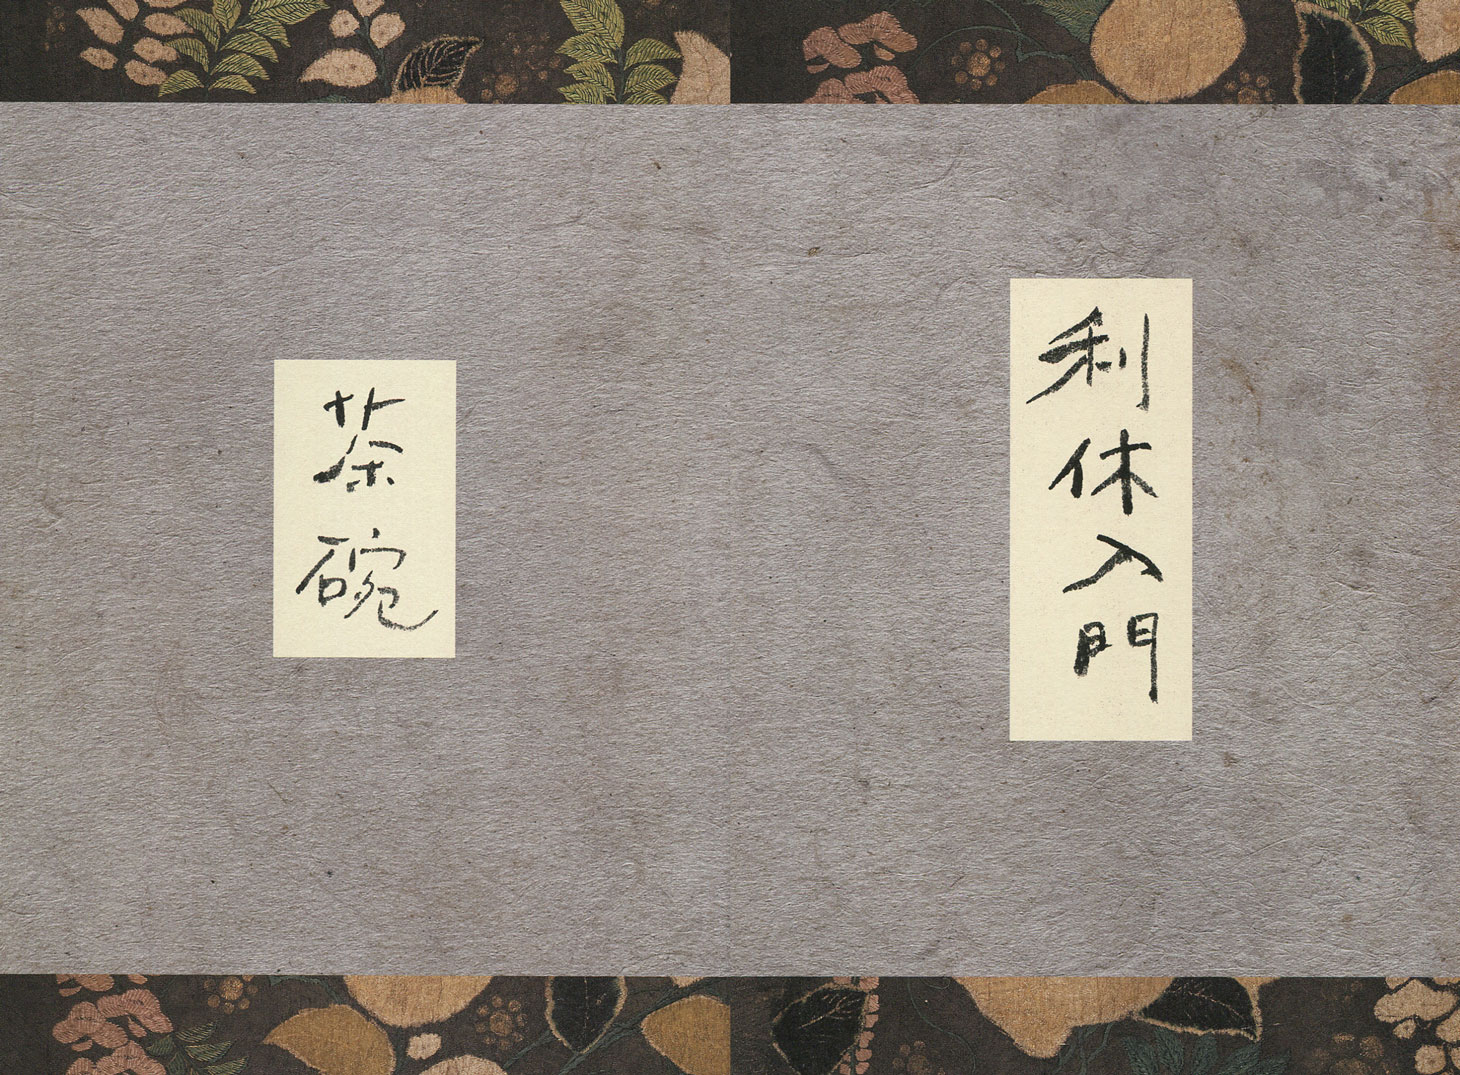 利休入門
茶碗